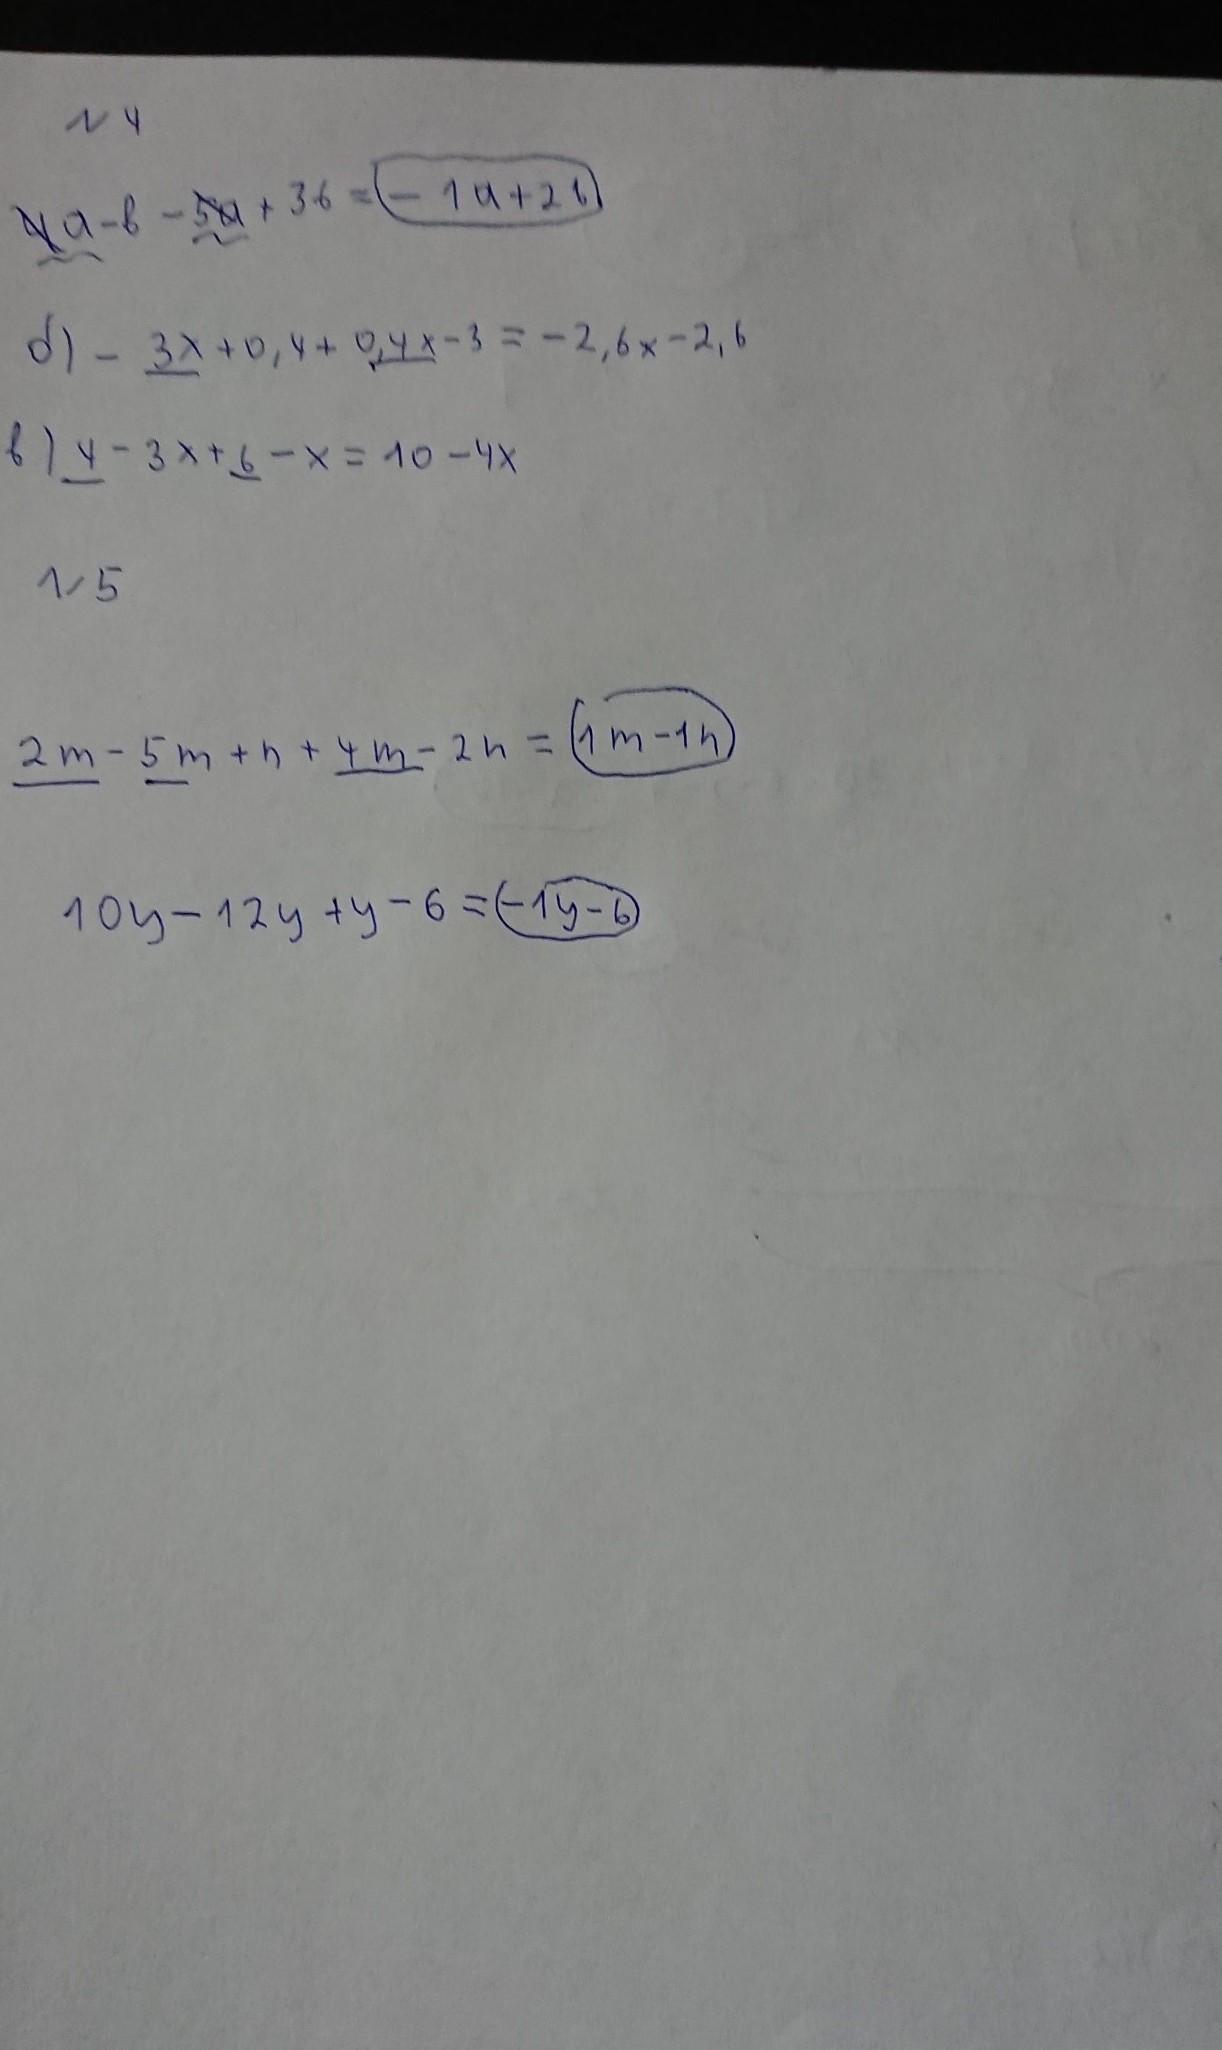 № 4
4a - в - 5a + 3в = - 1a + 2в
б) - 3x + 0,4 + 0,4x - 3 = - 2,6x - 2,6
в) 4 - 3x + 6 - x = 10 - 4x
№ 5
2m - 5m + n + 4m - 2n = 1m - 1n
10y - 12y + y - 6 = - 1y - 6